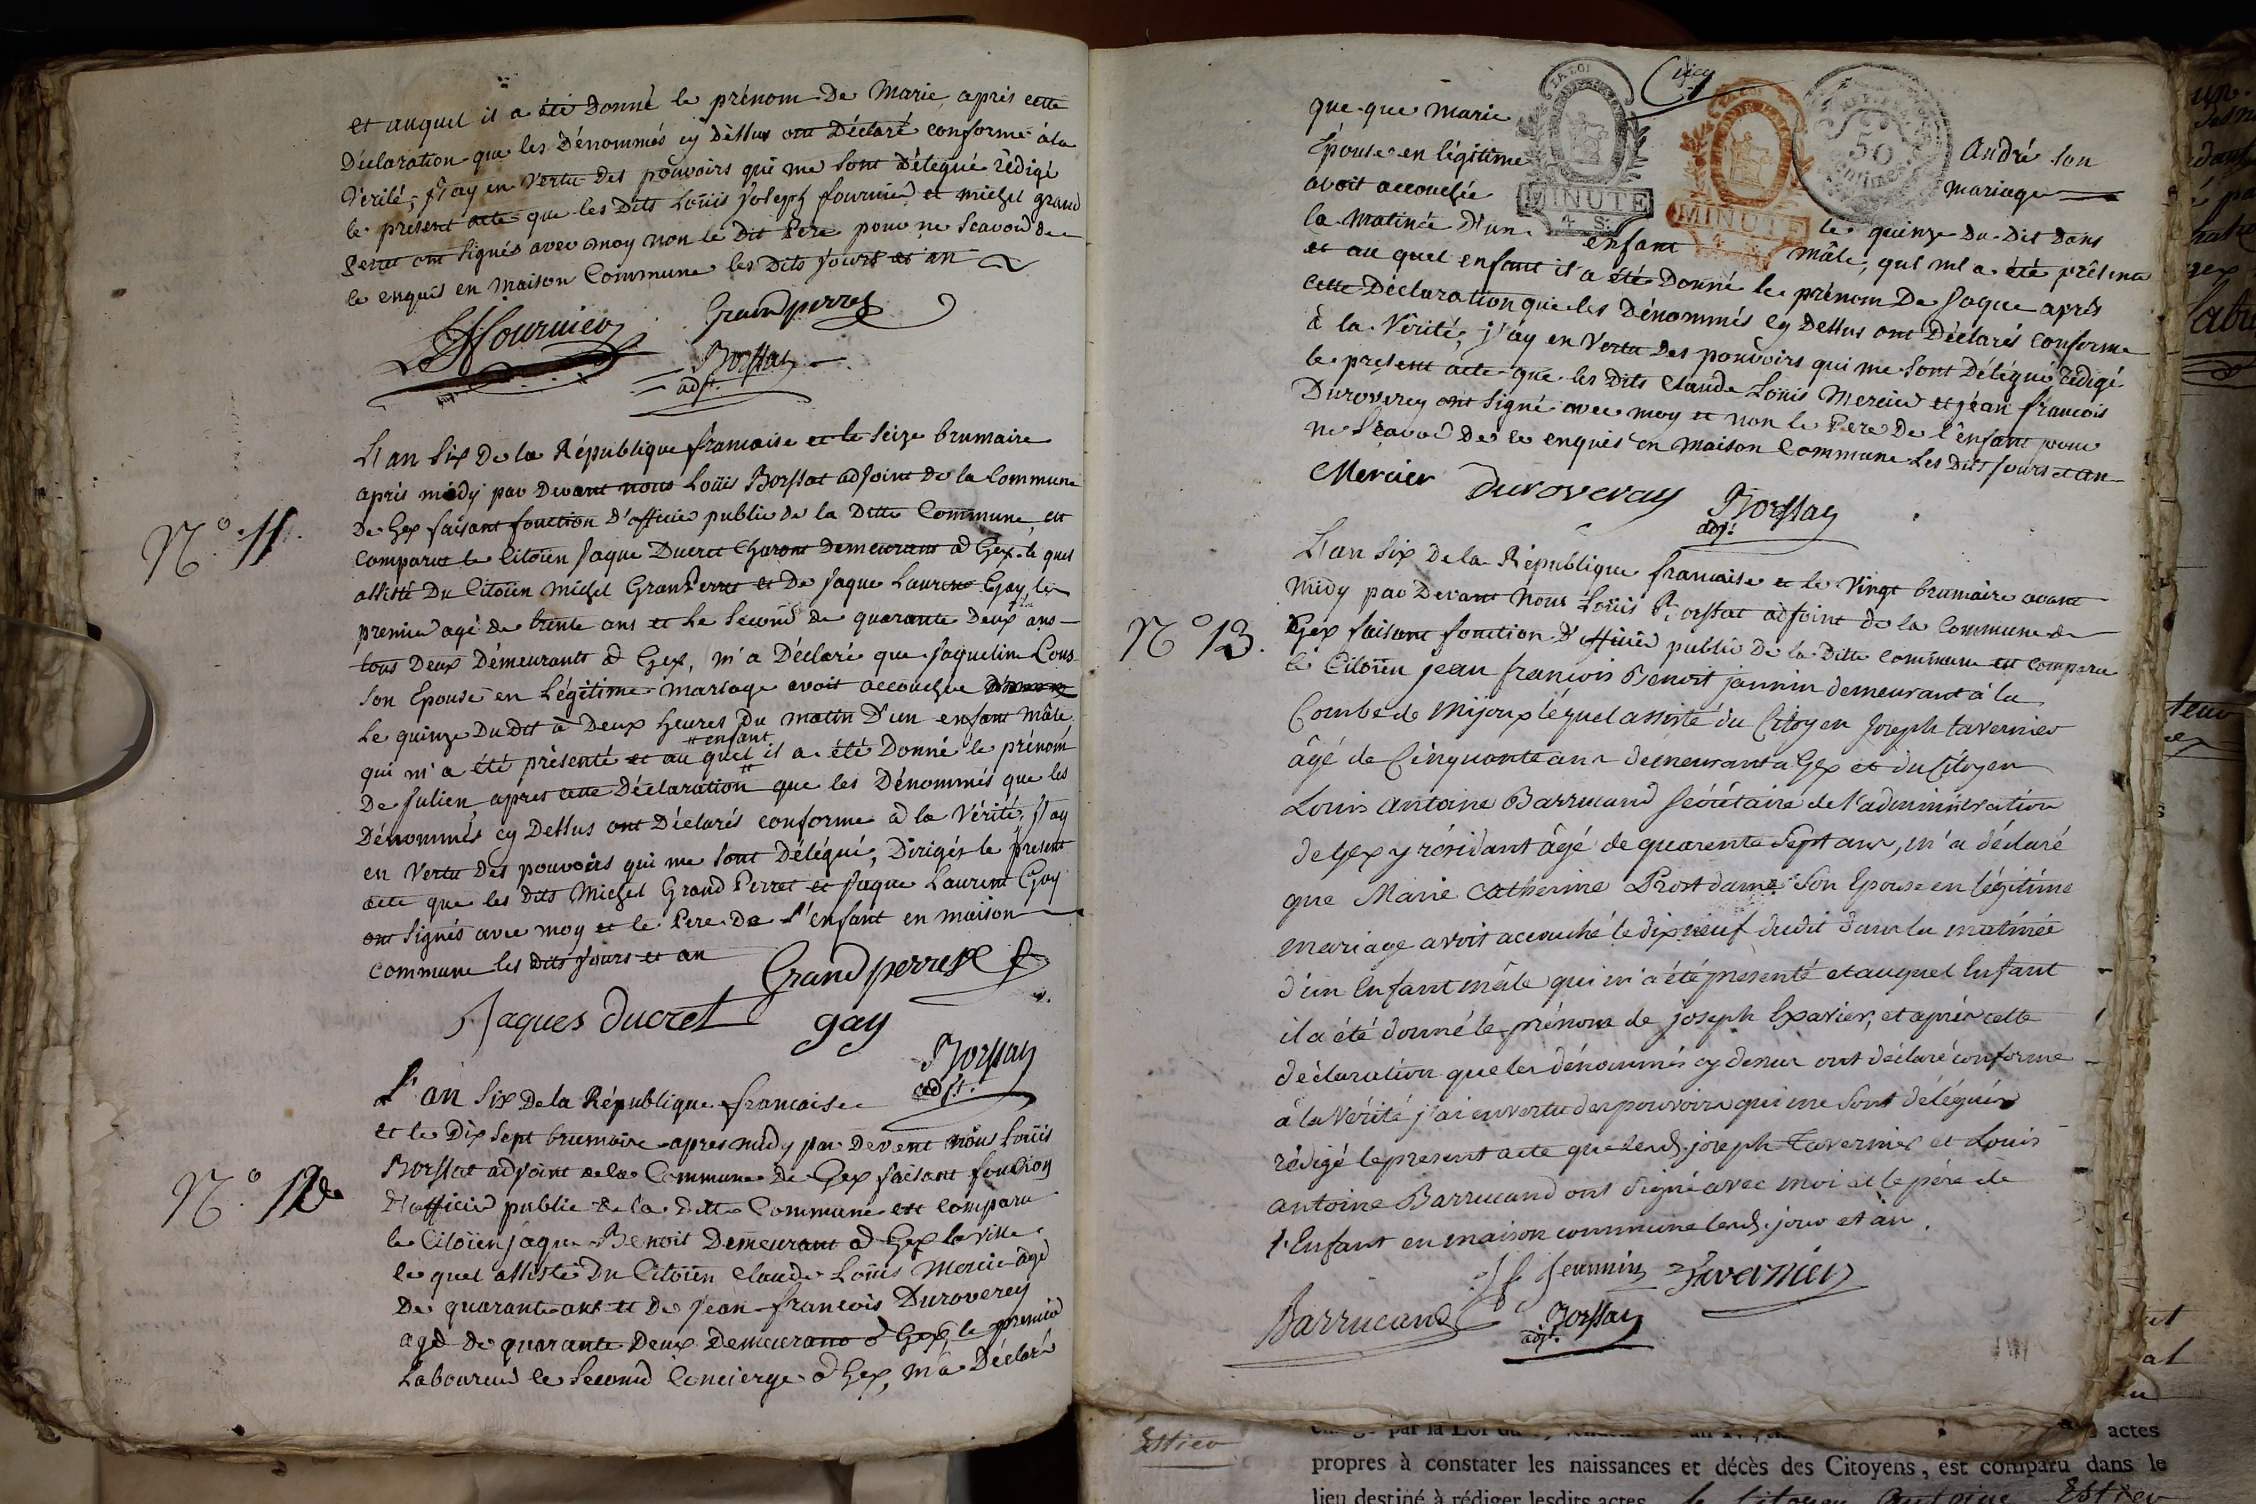 et auquel il a été Donné le prénom De Marie, après cette
Déclaration que les Dénommés cy Dessus ont Déclaré conforme à la
Vérité, J'ay en Vertu Des pouvoirs qui me sont Délegué Rédigé
le présent acte que les Dits Loüis Joseph fournier et michel grand
Perret ont signés avec moy non le Dit Pere pour ne Scavoir De
ce enquis en maison Commune les Dits Jours et an
Fournier
Grandperret
Borssat
adjt.
N.° 11.
L'an Six De la République francaise et le Seize brumaire
après midy par Devant nous Loüis Borssat adjoint De la Commune
De Gex faisant fonction D'officier public De la Ditte Commune est
Comparut le Citoïen Jaque Ducret Charont Demeurant à Gex le quel
assisté Du Citoïen Michel GranPerret et De Jaque Laurent Gay, le
premier agé de trente ans et Le Second de quarante Deux ans
tous Deux Démeurants à Gex, m'a Déclaré que Jaqueline Cons
son Epouse en Légitime mariage avoit accouchée
Le quinze Du Dit à Deux heures Du matin D'un enfant mâle
qui m'a été présenté et au quel il a été Donné le prénom
" enfant
De Julien après cette Déclaration que les Dénommés que les
Dénommés cy Dessus ont Déclarés conforme à la Vérité, J'ay
en Vertu Des pouvoirs qui me sont Délégué, Dirigés le présent
acte que les Dits Michel Grand Perret et Jaque Laurent Gay
ont signés avec moy et le Pere De l'enfant en maison
commune les Dits Jours et an
Grandperret
Jaques ducret
gay
Borssat
adjt.
N.° 12
L'an Six De la République francaise
et le Dix Sept brumaire apres midy par Devent nous Loüis
Borssat adjoint De la Commune De Gex faisant fonction
D'officier public De la Ditte Commune est comparu
le Citoïen jaque Benoit Demeurant à Gex la Ville
le quel assisté Du Citoïen Claude Loüis Mercier âgé
De quarante ans et De Jean francois Duroverey
agé De quarante Deux Demeurant à Gex, le premier
Laboureur le Second Concierge à Gex, m'a Déclaré
que que Marie André son
Épouse en légitime mariage
avoit accouchée le quinze Du Dit Dans
la Matinée D'un enfant mâle, qui m'a été présenté
et au quel enfant il a été Donné le prénom De Jaque après
cette Déclaration que les Dénommés cy Dessus ont Déclarés conforme
à la Vérité, j'ay en Vertu Des pouvoirs qui me sont Délégué Rédigé
le présent acte que les Dits Claude Loüis Mercier et jean francois
Duroverey ont signé avec moy et non le Pere De l'enfant pour
ne Scavoir De ce enquis en maison Commune Les Dits Jours et an
LA LOI
MINUTE
4 S.
LA LOI
MINUTE
50
Centimes
Mercier
Duroveray
Borssat
adjt.
N° 13.
L'an Six De la République francaise et le Vingt brumaire avant
midy par Devant Nous Loüis Borssat adjoint de la Commune de
Gex faisant fonction D'officier public De la Ditte Commune est comparu
le Citoïen jean francois Benoit jannin demeurant à la
Combe de Mijoux lequel assisté du Citoyen Joseph tavernier
âgé de Cinquante ans demeurant à Gex et du Citoyen
Louis Antoine Barrucand Secrétaire de l'administration
de Gex y résidant âgé de quarente Sept ans, m'a déclaré
que Marie Catherine Prost dame Son Epouse en légitime
mariage avoit accouché le dix neuf dudit dans la matinée
d'un Enfant mâle qui m'a été présenté et auquel Enfant
il a été donné le prénom de joseph Exavier, et après cette
déclaration que les dénommés cy dessus ont déclaré conforme
à la Vérité j'ai en vertu des pouvoirs qui me Sont délégués
rédigé le present acte que lesd. joseph Tavernier et Louis
Antoine Barrucand ont Signé avec moi et le père de
l'Enfant en maison commune lesd. jour et an.
Jf Jeannin
Tavernier
Barrucand
Borssat
adjt.
Estier
propres à constater les naissances et décès des Citoyens, est comparu dans le
lieu destiné à rédiger lesdits actes le Citoyen Antoine Estier